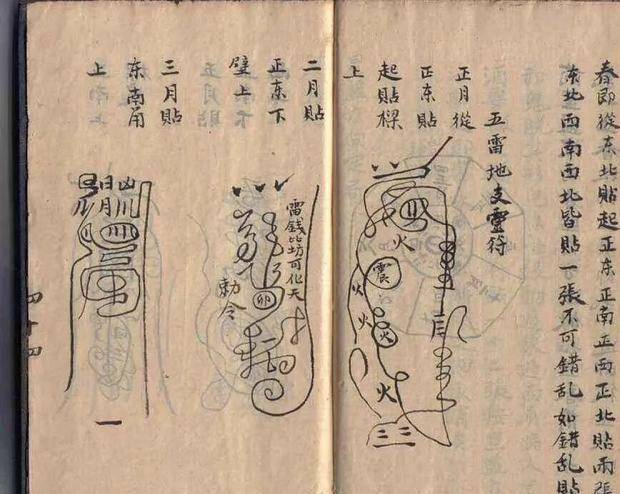 春即從东北貼起正东正南正西正北貼兩張
东北西南西北皆貼一張不可錯乱如錯乱貼
五雷地支靈符
正月從
正东貼
起貼樑
上
火
震
火
火
火
火
二月貼
正东下
壁上
雷錢比坊可化天
卯
勅令
三月貼
东南角
上
日月
一
四十四